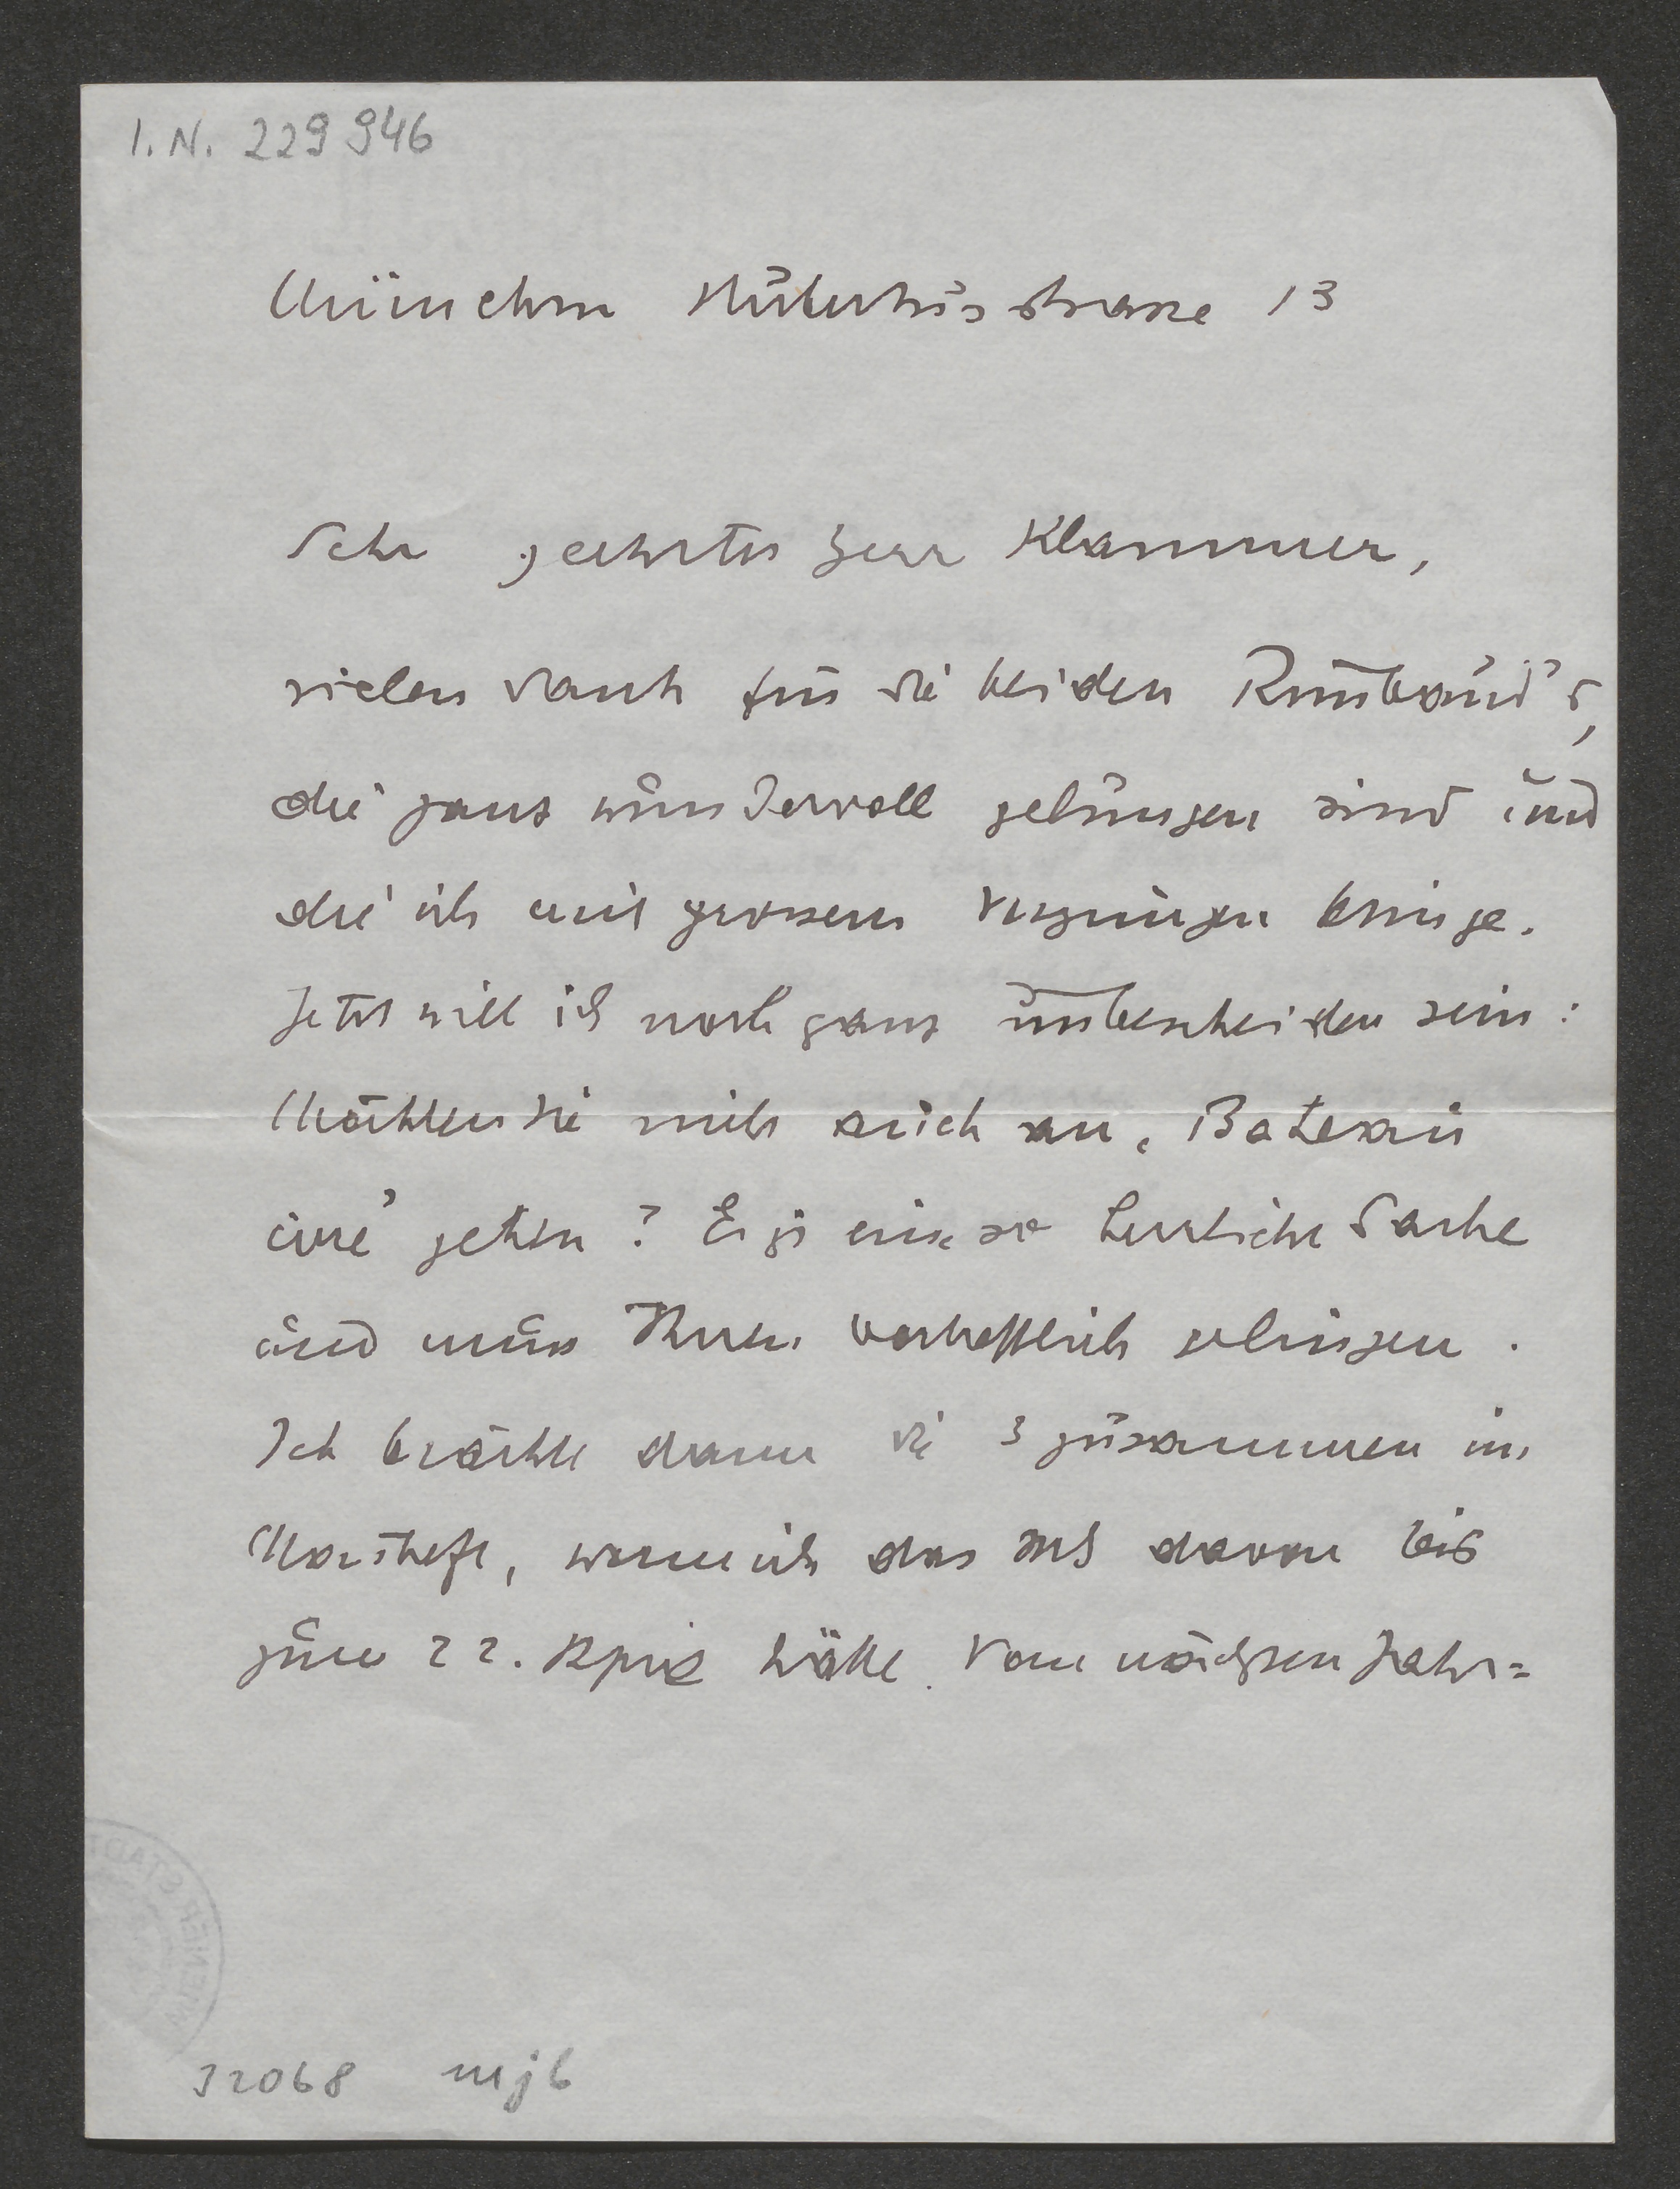 I. N. 229 946
München Hubertusstrasse 13
Sehr geehrter Herr Klammer,
vielen Dank für die beiden Rimbaud's,
die ganz wundervoll gelungen sind und
die ich mit grossem Vergnügen bringe.
Jetzt will ich noch ganz unbescheiden sein:
Möchten Sie nicht auch an, Bateau
ivre' gehen? Es ist eine so herrliche Sache
und muss Ihnen vortrefflich gelingen.
Ich brächte dann die 3 zusammen im
Maiheft, wenn ich das MS davon bis
zum 22. April hätte. Vom nächsten Jahr=
WIENER STADT
32068 mjb